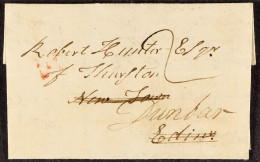 Robert Hunter Esqr
of Thurston 2
New Town
Dunbar
Edinr